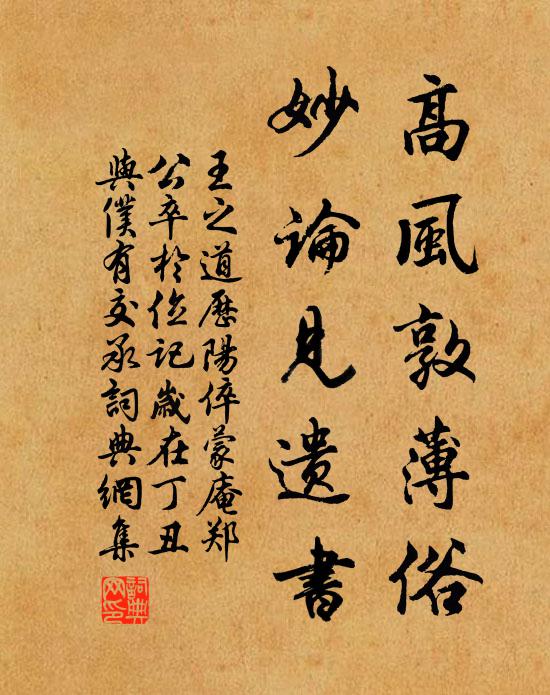 高風敦薄俗
妙論見遺書
王之道歷陽倅蒙庵郑
公卒於位記歲在丁丑
與僕有交承詞典網集